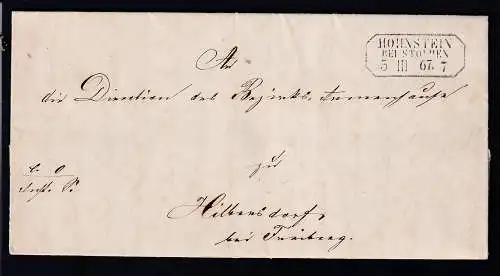 HOHNSTEIN
BEI STOLPEN
5 III 67. 7
An
die Direction des Bezirks-Armenhauses
zu
Hilbersdorf,
bei Freiberg.